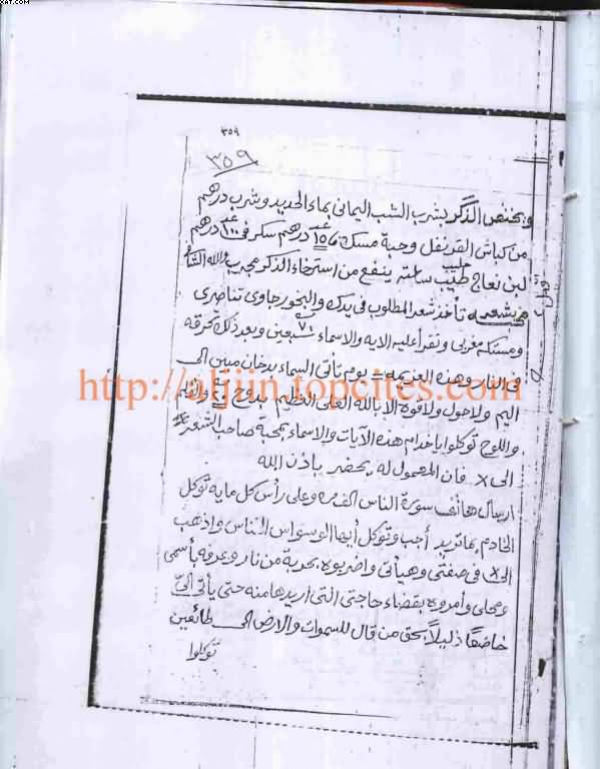 XAT.COM
٣٥٩
٣٥٩
ويختص الذكر بشرب الشب اليمانى بماء الحديد وشرب درهم
من كباش القرنفل وحبة مسك درهم سكر فى ١٠٠ درهم
لبن نعاج حليب طيب ساعته ينفع من استرخاء الذكر مجرب
تأخذ شعر المطلوب فى يدك والبخور جاوى تناصرى
ومستكه مغربى وتقرأ عليه الايه والاسماء ٧١ سبعين وبعد ذلك تحرقه
فى النار وهذه العزيمه يوم تأتى السماء بدخان مبين الى
http://aljiin.topcites.com
اليم ولاحول ولاقوة الا بالله العلى العظيم بدوح والقلم
واللوح توكلوا ياخدام هذه الآيات والاسماء بمحبة صاحب الشعر
الى X فان المعمول له يحضر باذن الله
ارسال هاتف سورة الناس الف مره وعلى رأس كل مايه توكل
الخادم بما تريد أجب وتوكل أيها الوسواس الخناس واذهب
الى X فى صفتى وهيأتى واضربوه بحربة من نار وعرفه بأسمى
ومحلى وأمروه بقضاء حاجتى التى اريدها منه حتى يأتى الىّ
خاضعًا ذليلاً بحق من قال للسموات والارض الى طائعين
توكلوا